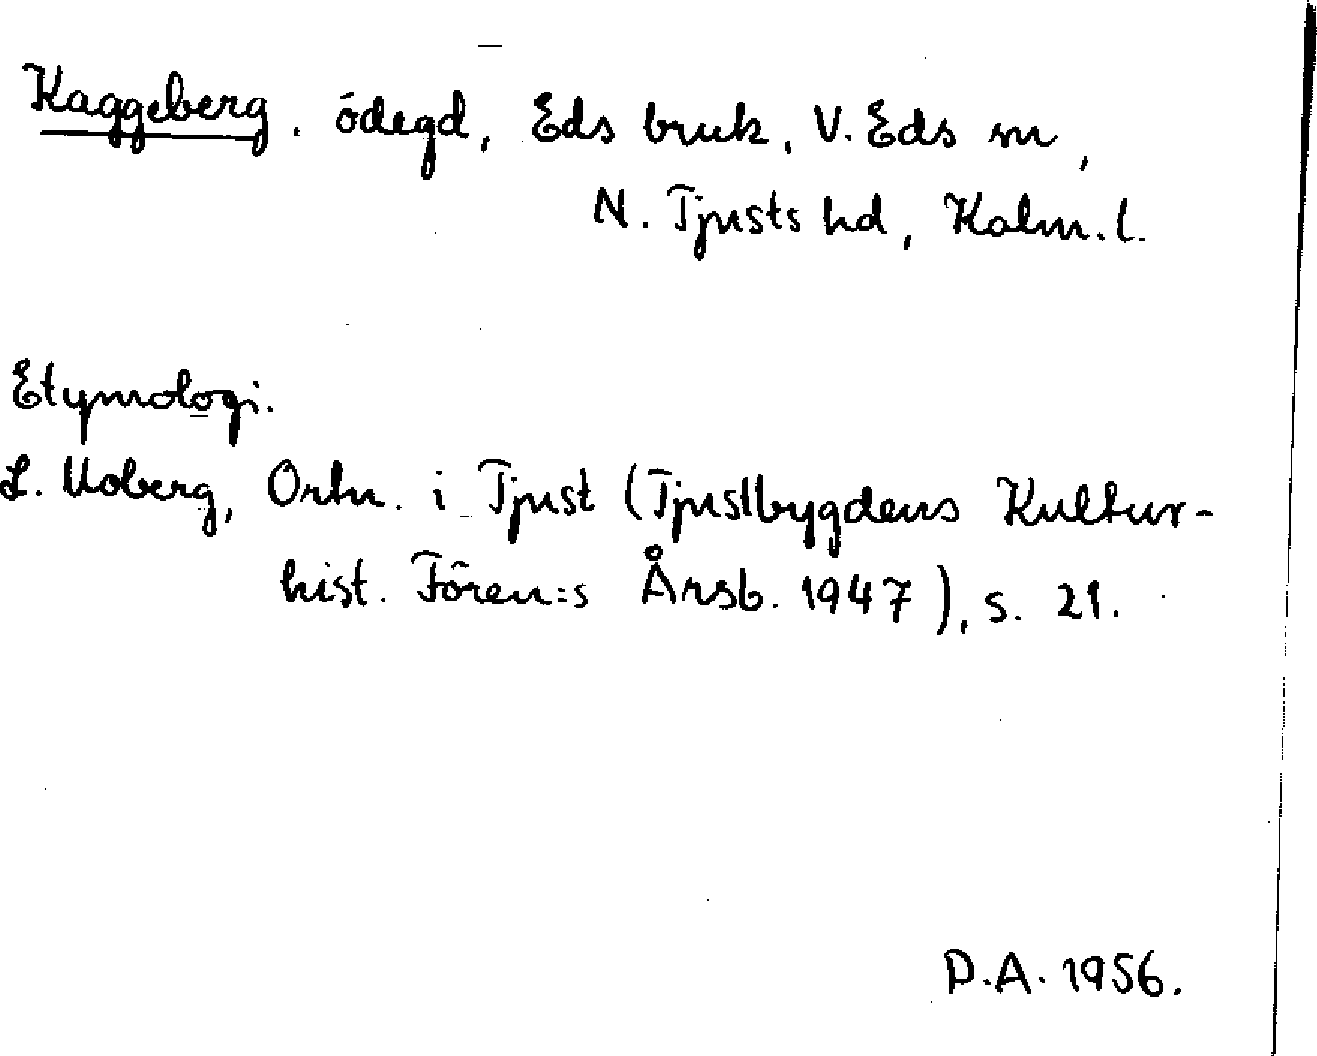 Kaggeberg. ödegd, Eds bruk, V. Eds sn,
N. Tjusts hd, Kalm. l.
Etymologi.
L. Moberg, Ortn. i Tjust (Tjustbygdens Kultur-
hist. Fören:s Årsb. 1947), s. 21.
P.A. 1956.